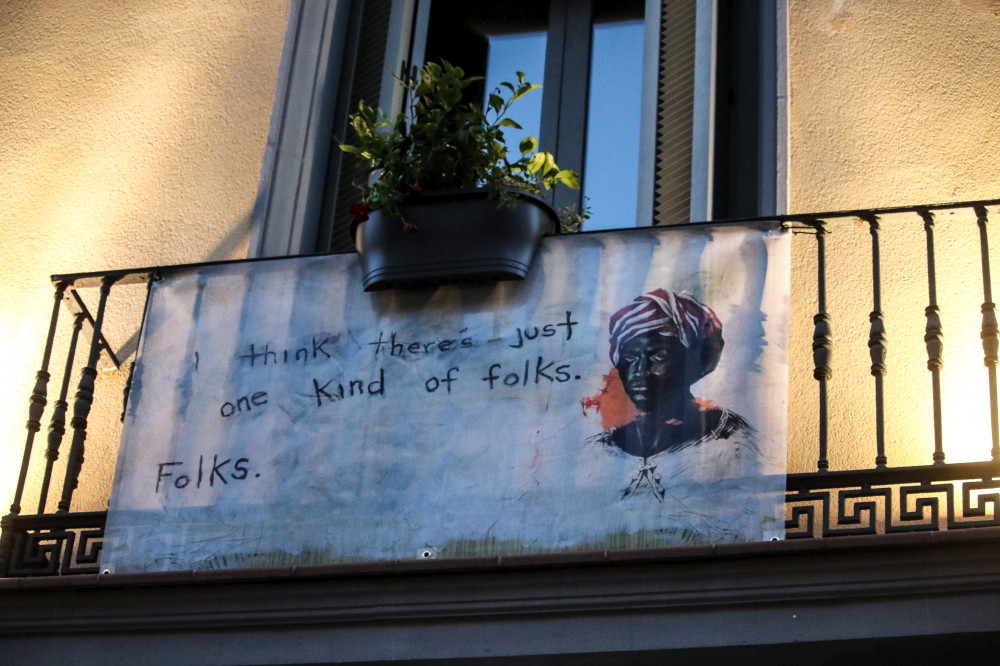 I think there's just
one kind of folks.
Folks.